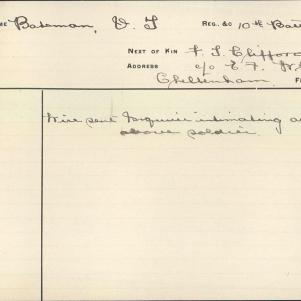 ME Bateman, V T REG. &c 10th Batt
NEXT OF KIN F. T. Clifford
ADDRESS c/o E. F.
Cheltenham
Wire sent Enquiries intimating
above soldier.